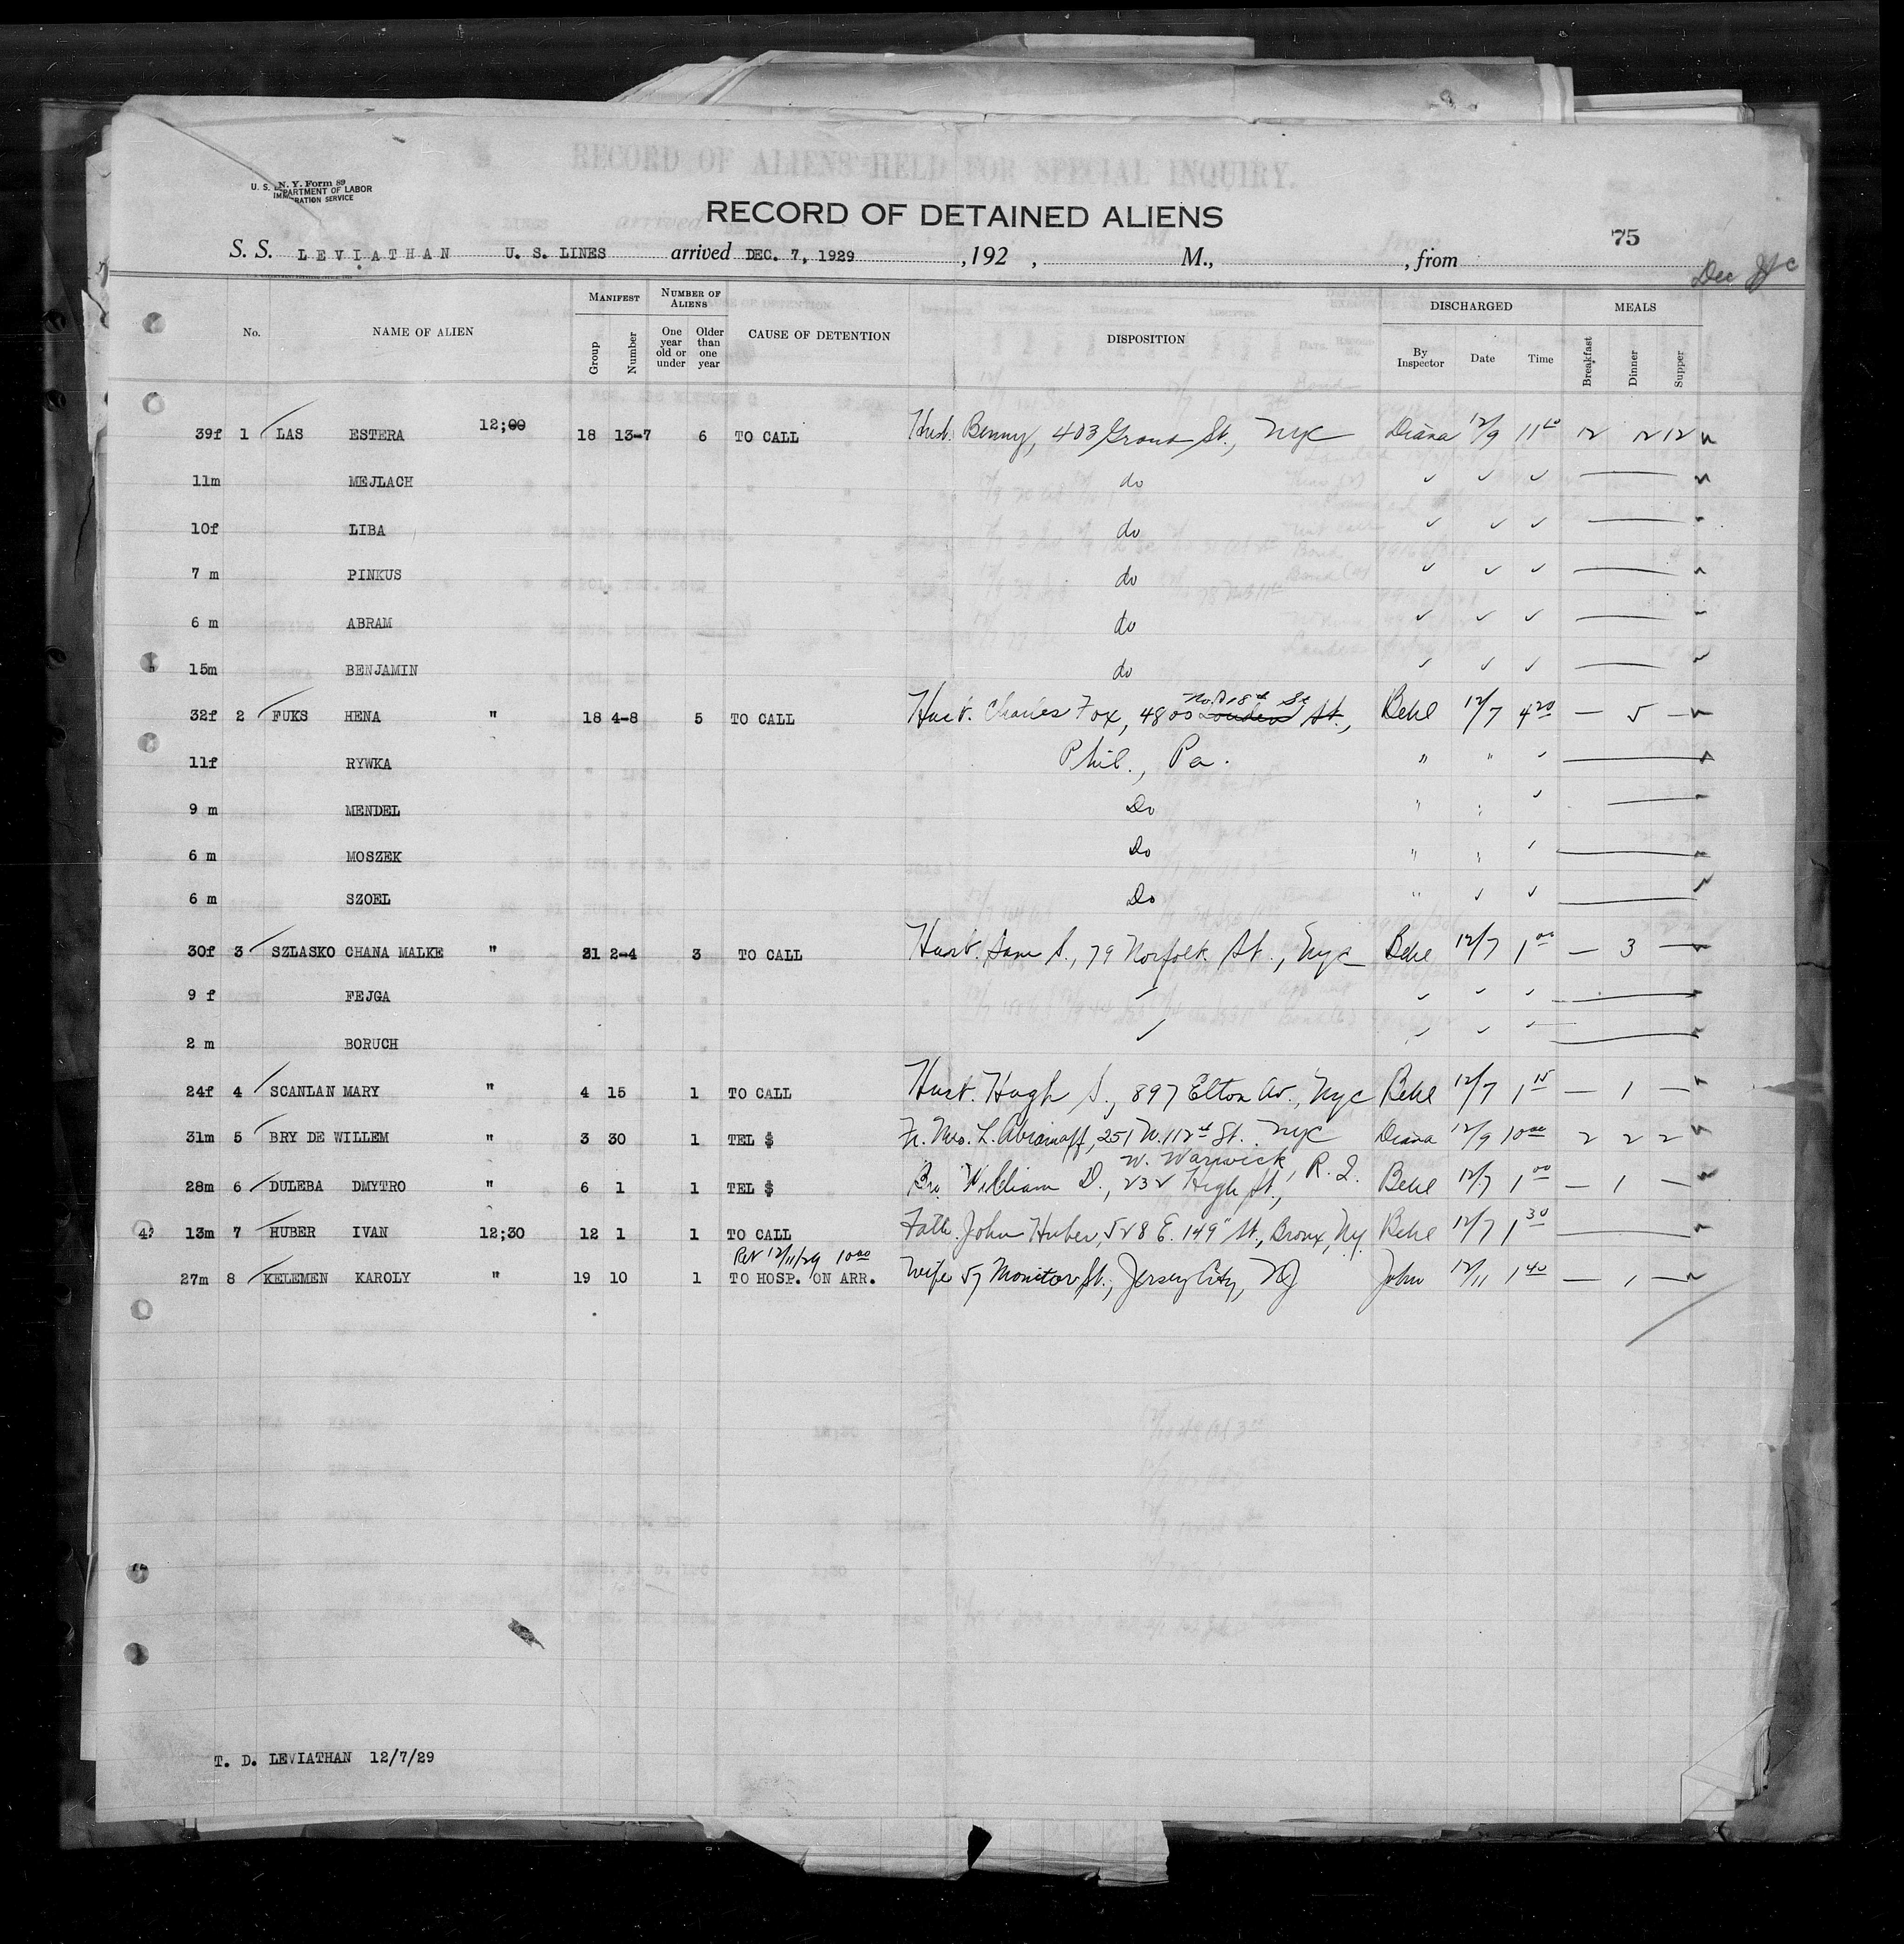 RECORD OF ALIENS HELD FOR SPECIAL INQUIRY.
N. Y. Form 89
U. S. DEPARTMENT OF LABOR
IMMIGRATION SERVICE
RECORD OF DETAINED ALIENS
75
S. S. LEVIATHAN U. S. LINES arrived DEC. 7, 1929 , 192 , M., , from
Dec
No. NAME OF ALIEN MANIFEST Group Number NUMBER OF ALIENS One year old or under Older than one year CAUSE OF DETENTION DISPOSITION DISCHARGED By Inspector Date Time MEALS Breakfast Dinner Supper
39f 1 LAS ESTERA 12;00 18 13-7 6 TO CALL Husb. Benny, 403 Grand St., NYC Diana 12/9 11 12 12 12
11m MEJLACH do ✓ ✓ ✓
10f LIBA do ✓ ✓ ✓
7 m PINKUS do ✓ ✓ ✓
6 m ABRAM do ✓ ✓ ✓
15m BENJAMIN do ✓ ✓ ✓
No. 18th St
32f 2 FUKS HENA " 18 4-8 5 TO CALL Husb. Charles Fox, 4800 St., Behl 12/7 4 20 — 5 —
11f RYWKA Phil., Pa. " " ✓
9 m MENDEL Do
6 m MOSZEK Do
6 m SZOEL Do " ✓ ✓
30f 3 SZLASKO CHANA MALKE " 31 2-4 3 TO CALL Husb. Sam S., 79 Norfolk St., Nyc Behl 12/7 1 00 — 3 —
9 f FEJGA ✓ ✓ ✓ ✓
2 m BORUCH ✓ ✓ ✓ ✓
24f 4 SCANLAN MARY " 4 15 1 TO CALL Husb. Hugh S., 897 Elton Av., Nyc Behl 12/7 1 15 — 1 —
31m 5 BRY DE WILLEM " 3 30 1 TEL $ Fr. Mrs. L. Abramoff, 251 W. 112th St. NYC Diana 12/9 10 00 2 2 2
W. Warwick, R. I.
28m 6 DULEBA DMYTRO " 6 1 1 TEL $ Bro. William D., 232 High St., Behl 12/7 1 00 — 1 —
13m 7 HUBER IVAN 12;30 12 1 1 TO CALL Fath. John Huber, 528 E. 149" St., Bronx, Ny Behl 12/7 1 30
Ret 12/11/29 10 00
27m 8 KELEMEN KAROLY " 19 10 1 TO HOSP. ON ARR. Wife 57 Monitor St., Jersey City, NJ John 12/11 1 40 — 1 —
T. D. LEVIATHAN 12/7/29